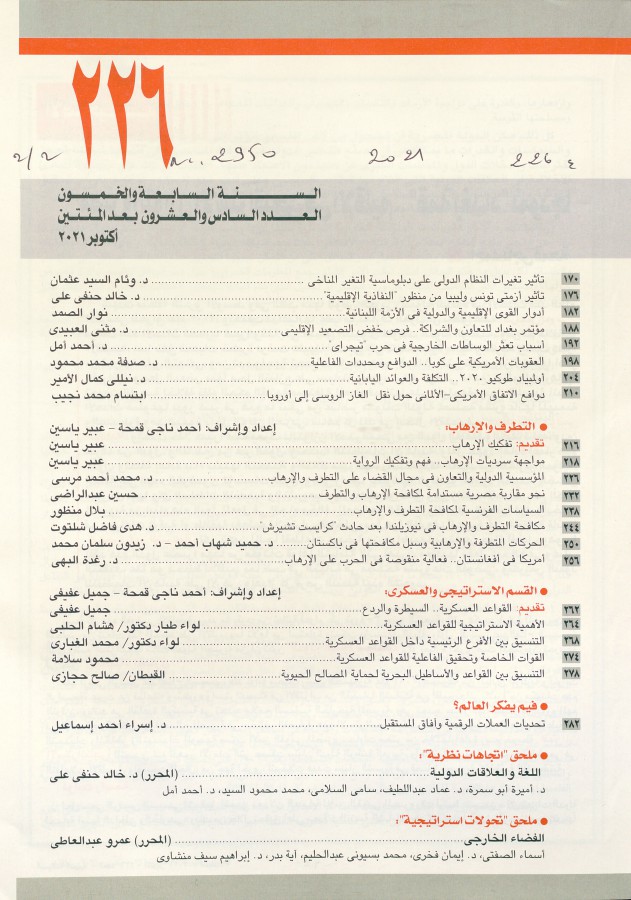 ٢٢٦
2/2 N.. 2950 2021 226 ع
الســـنة السـابعة والخمسون
العـدد السادس والعشرون بعد المئتين
أكتوبر ٢٠٢١
١٧٠ تأثير تغيرات النظام الدولى على دبلوماسية التغير المناخى د. وئام السيد عثمان
١٧٦ تأثير أزمتى تونس وليبيا من منظور "النفاذية الإقليمية" د. خالد حنفى على
١٨٢ أدوار القوى الإقليمية والدولية فى الأزمة اللبنانية نوار الصمد
١٨٨ مؤتمر بغداد للتعاون والشراكة.. فرص خفض التصعيد الإقليمى د. مثنى العبيدى
١٩٢ أسباب تعثر الوساطات الخارجية فى حرب "تيجراى" د. أحمد أمل
١٩٨ العقوبات الأمريكية على كوبا.. الدوافع ومحددات الفاعلية د. صدفة محمد محمود
٢٠٤ أولمبياد طوكيو ٢٠٢٠.. التكلفة والعوائد اليابانية د. نيللى كمال الأمير
٢١٠ دوافع الاتفاق الأمريكى-الألمانى حول نقل الغاز الروسى إلى أوروبا ابتسام محمد نجيب
● التطرف والإرهاب: إعداد وإشراف: أحمد ناجى قمحة - عبير ياسين
٢١٦ تقديم: تفكيك الإرهاب عبير ياسين
٢١٨ مواجهة سرديات الإرهاب.. فهم وتفكيك الرواية عبير ياسين
٢٢٦ المؤسسية الدولية والتعاون فى مجال القضاء على التطرف والإرهاب د. محمد أحمد مرسى
٢٣٢ نحو مقاربة مصرية مستدامة لمكافحة الإرهاب والتطرف حسين عبدالراضى
٢٣٨ السياسات الفرنسية لمكافحة التطرف والإرهاب بلال منظور
٢٤٤ مكافحة التطرف والإرهاب فى نيوزيلندا بعد حادث "كرايست تشيرش" د. هدى فاضل شلتوت
٢٥٠ الحركات المتطرفة والإرهابية وسبل مكافحتها فى باكستان د. حميد شهاب أحمد - د. زيدون سلمان محمد
٢٥٦ أمريكا فى أفغانستان.. فعالية منقوصة فى الحرب على الإرهاب د. رغدة البهى
● القسم الاستراتيجى والعسكرى: إعداد وإشراف: أحمد ناجى قمحة - جميل عفيفى
٢٦٢ تقديم: القواعد العسكرية.. السيطرة والردع جميل عفيفى
٢٦٤ الأهمية الاستراتيجية للقواعد العسكرية لواء طيار دكتور/ هشام الحلبى
٢٦٨ التنسيق بين الأفرع الرئيسية داخل القواعد العسكرية لواء دكتور/ محمد الغبارى
٢٧٤ القوات الخاصة وتحقيق الفاعلية للقواعد العسكرية محمود سلامة
٢٧٨ التنسيق بين القواعد والأساطيل البحرية لحماية المصالح الحيوية القبطان/ صالح حجازى
● فيم يفكر العالم؟
٢٨٢ تحديات العملات الرقمية وآفاق المستقبل د. إسراء أحمد إسماعيل
● ملحق "اتجاهات نظرية":
اللغة والعلاقات الدولية (المحرر) د. خالد حنفى على
د. أميرة أبو سمرة، د. عماد عبداللطيف، سامى السلامى، محمد محمود السيد، د. أحمد أمل
● ملحق "تحولات استراتيجية":
الفضاء الخارجى (المحرر) عمرو عبدالعاطى
أسماء الصفتى، د. إيمان فخرى، محمد بسيونى عبدالحليم، آية بدر، د. إبراهيم سيف منشاوى